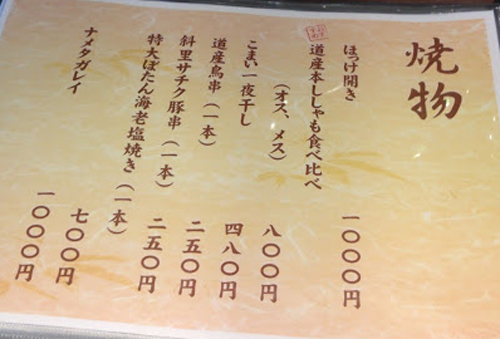 焼物
ほっけ開き
一〇〇〇円
道産本ししゃも食べ比べ
(オス、メス)
八〇〇円
こまい一夜干し
四八〇円
道産鳥串(一本)
二五〇円
斜里サチク豚串(一本)
二五〇円
特大ぼたん海老塩焼き(一本)
七〇〇円
ナメタガレイ
一〇〇〇円